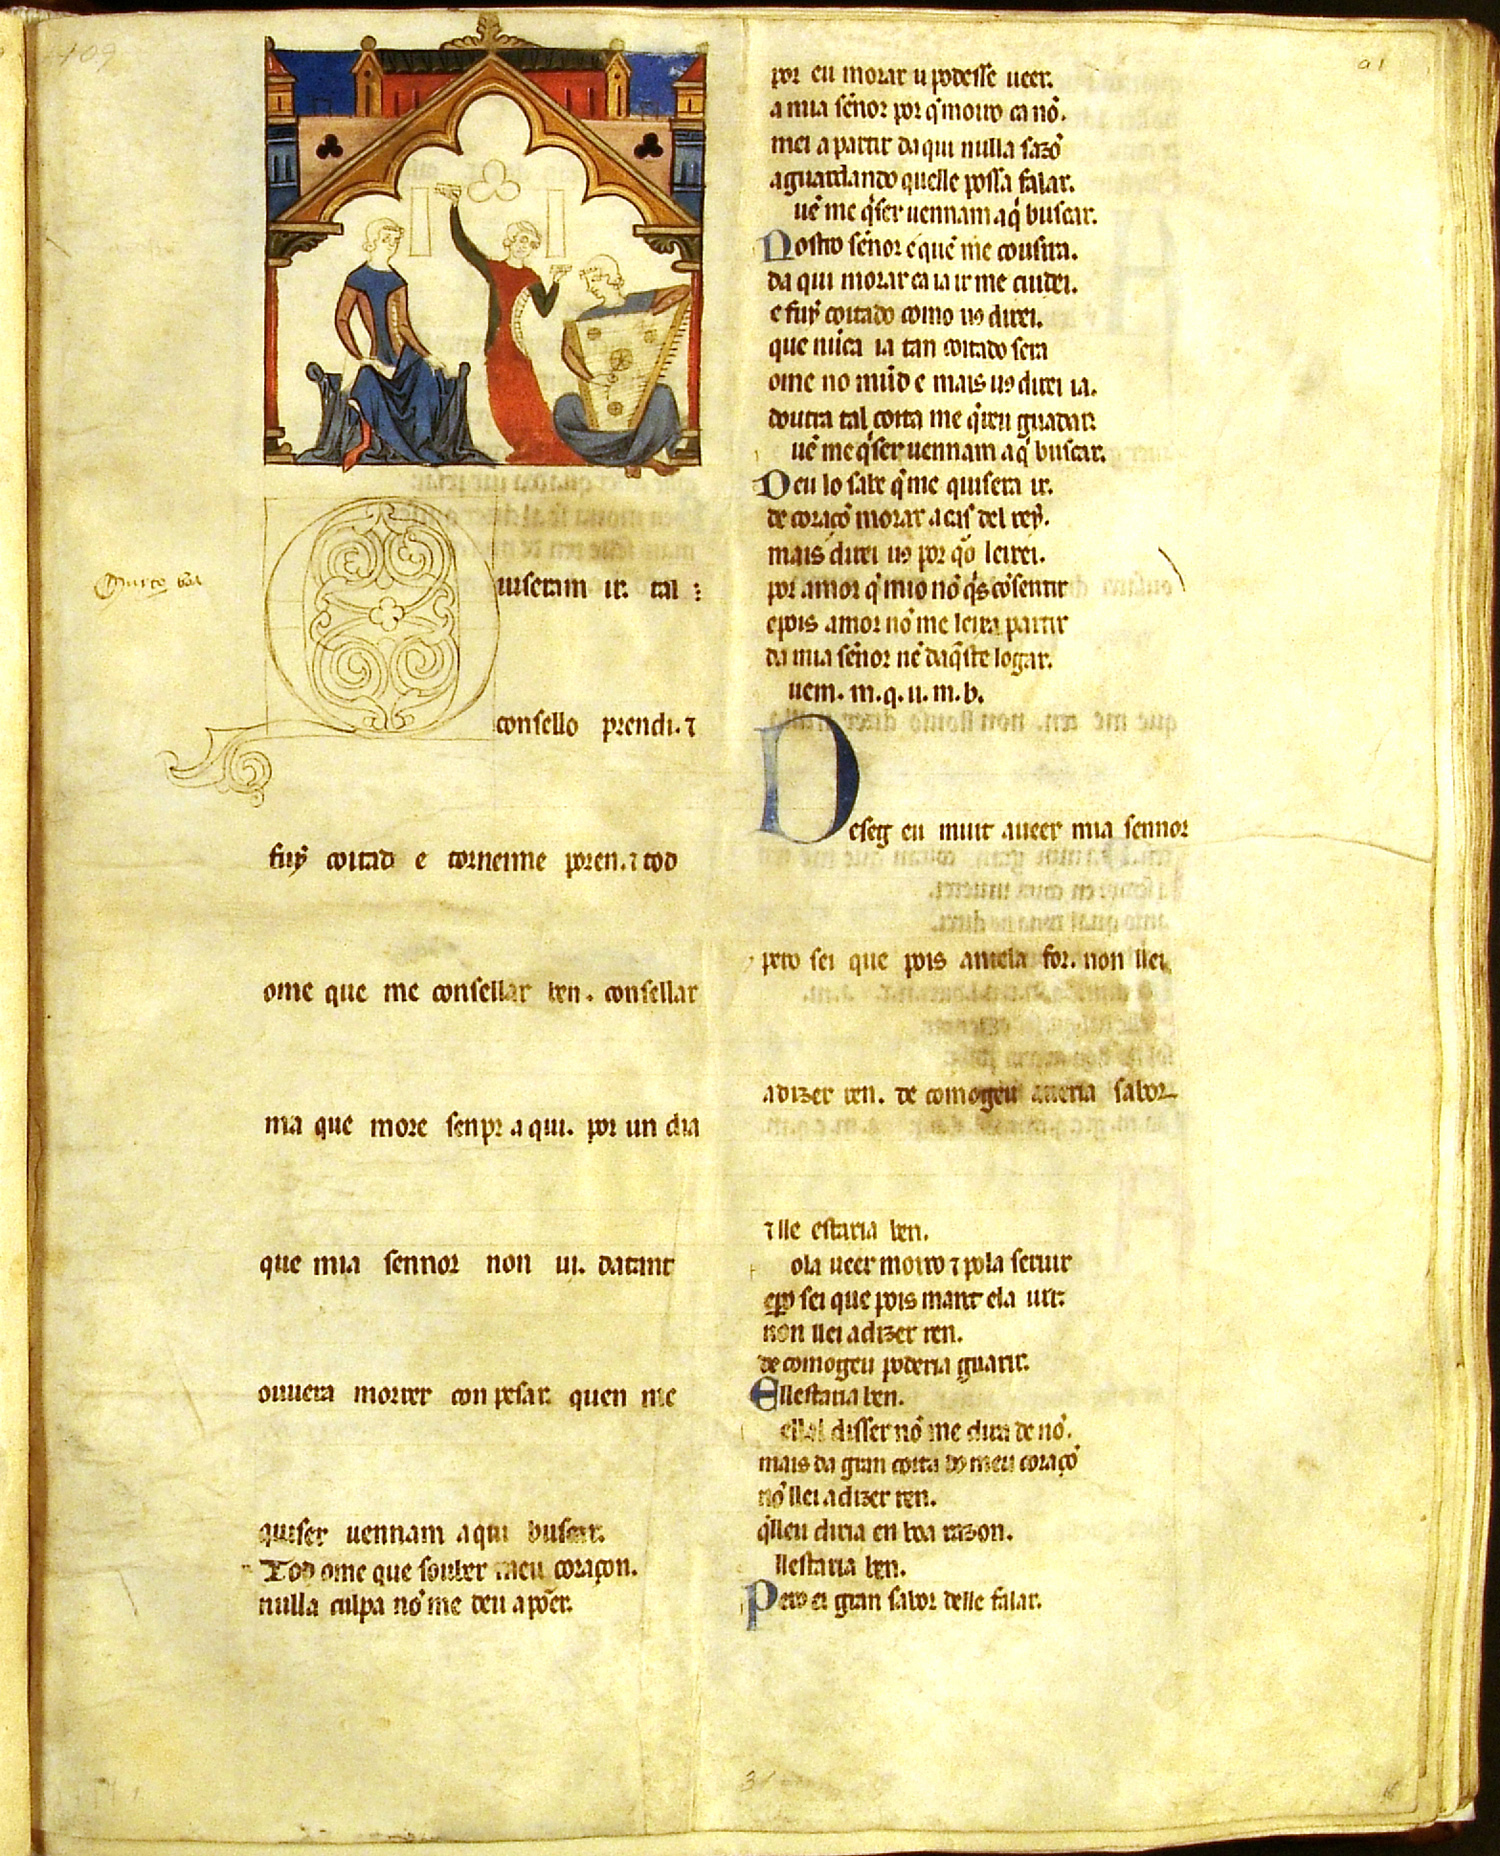 409
a 1
uiseram ir. tal
consello prendi. ⁊
fuy̆ coitad e tornei me poren. ⁊ tod
ome que me consellar ben. consellar
ma que more senpr aqui. por un dia
que mia sennor non ui. datant
ouuera morrer con pesar. quen me
quiser uennam aqui buscar.
Tod ome que souber meu coraçon.
nulla culpa nō me deu a põer.
por eu morar u podesse ueer.
a mia sen̄or por q̄ moiro ca nō.
mei a partir daqui nulla sazō
aguardando quelle possa falar.
uē me q̇ser uennam aq̇ buscar.
Nostro sen̄or e quē me conſira.
da qui morar ca ia ir me cuidei.
e fuy̆ coitado como uꝯ direi.
que nūca ia tan coitado sera
ome no mūdo e mais uꝯ direi ia.
doutra tal coita me q̇reu guadar.
uē me q̇ser uennam aq̇ buscar.
Deu lo sabe q̄ me quisera ir.
de coraçō morar a cas del rey̆.
mais direi uꝯ por qō leixei.
por amor q̄ mio nō q̇s cōsentir
e pois amor nō me leixa partir
da mia sen̄or nē daq̄ste logar.
uem. m. q. u. m. b.
Deseg eu muit aueer mia sennor
pero sei que pois antela for. non llei
adizer ren. de comogeu aueria sabor
⁊ lle estaria ben.
ola ueer moiro ⁊ pola seruir
e ꝑo sei que pois mant ela uir.
non llei adizer ren.
de comogeu poderia guarir.
Ellestaria ben.
disser nō me dira de nō.
mais da gran coita do meu coraçō
nō llei adizer ren.
q̄lleu diria en boa razon.
llestaria ben.
Pero ei gran sabor delle falar.
31